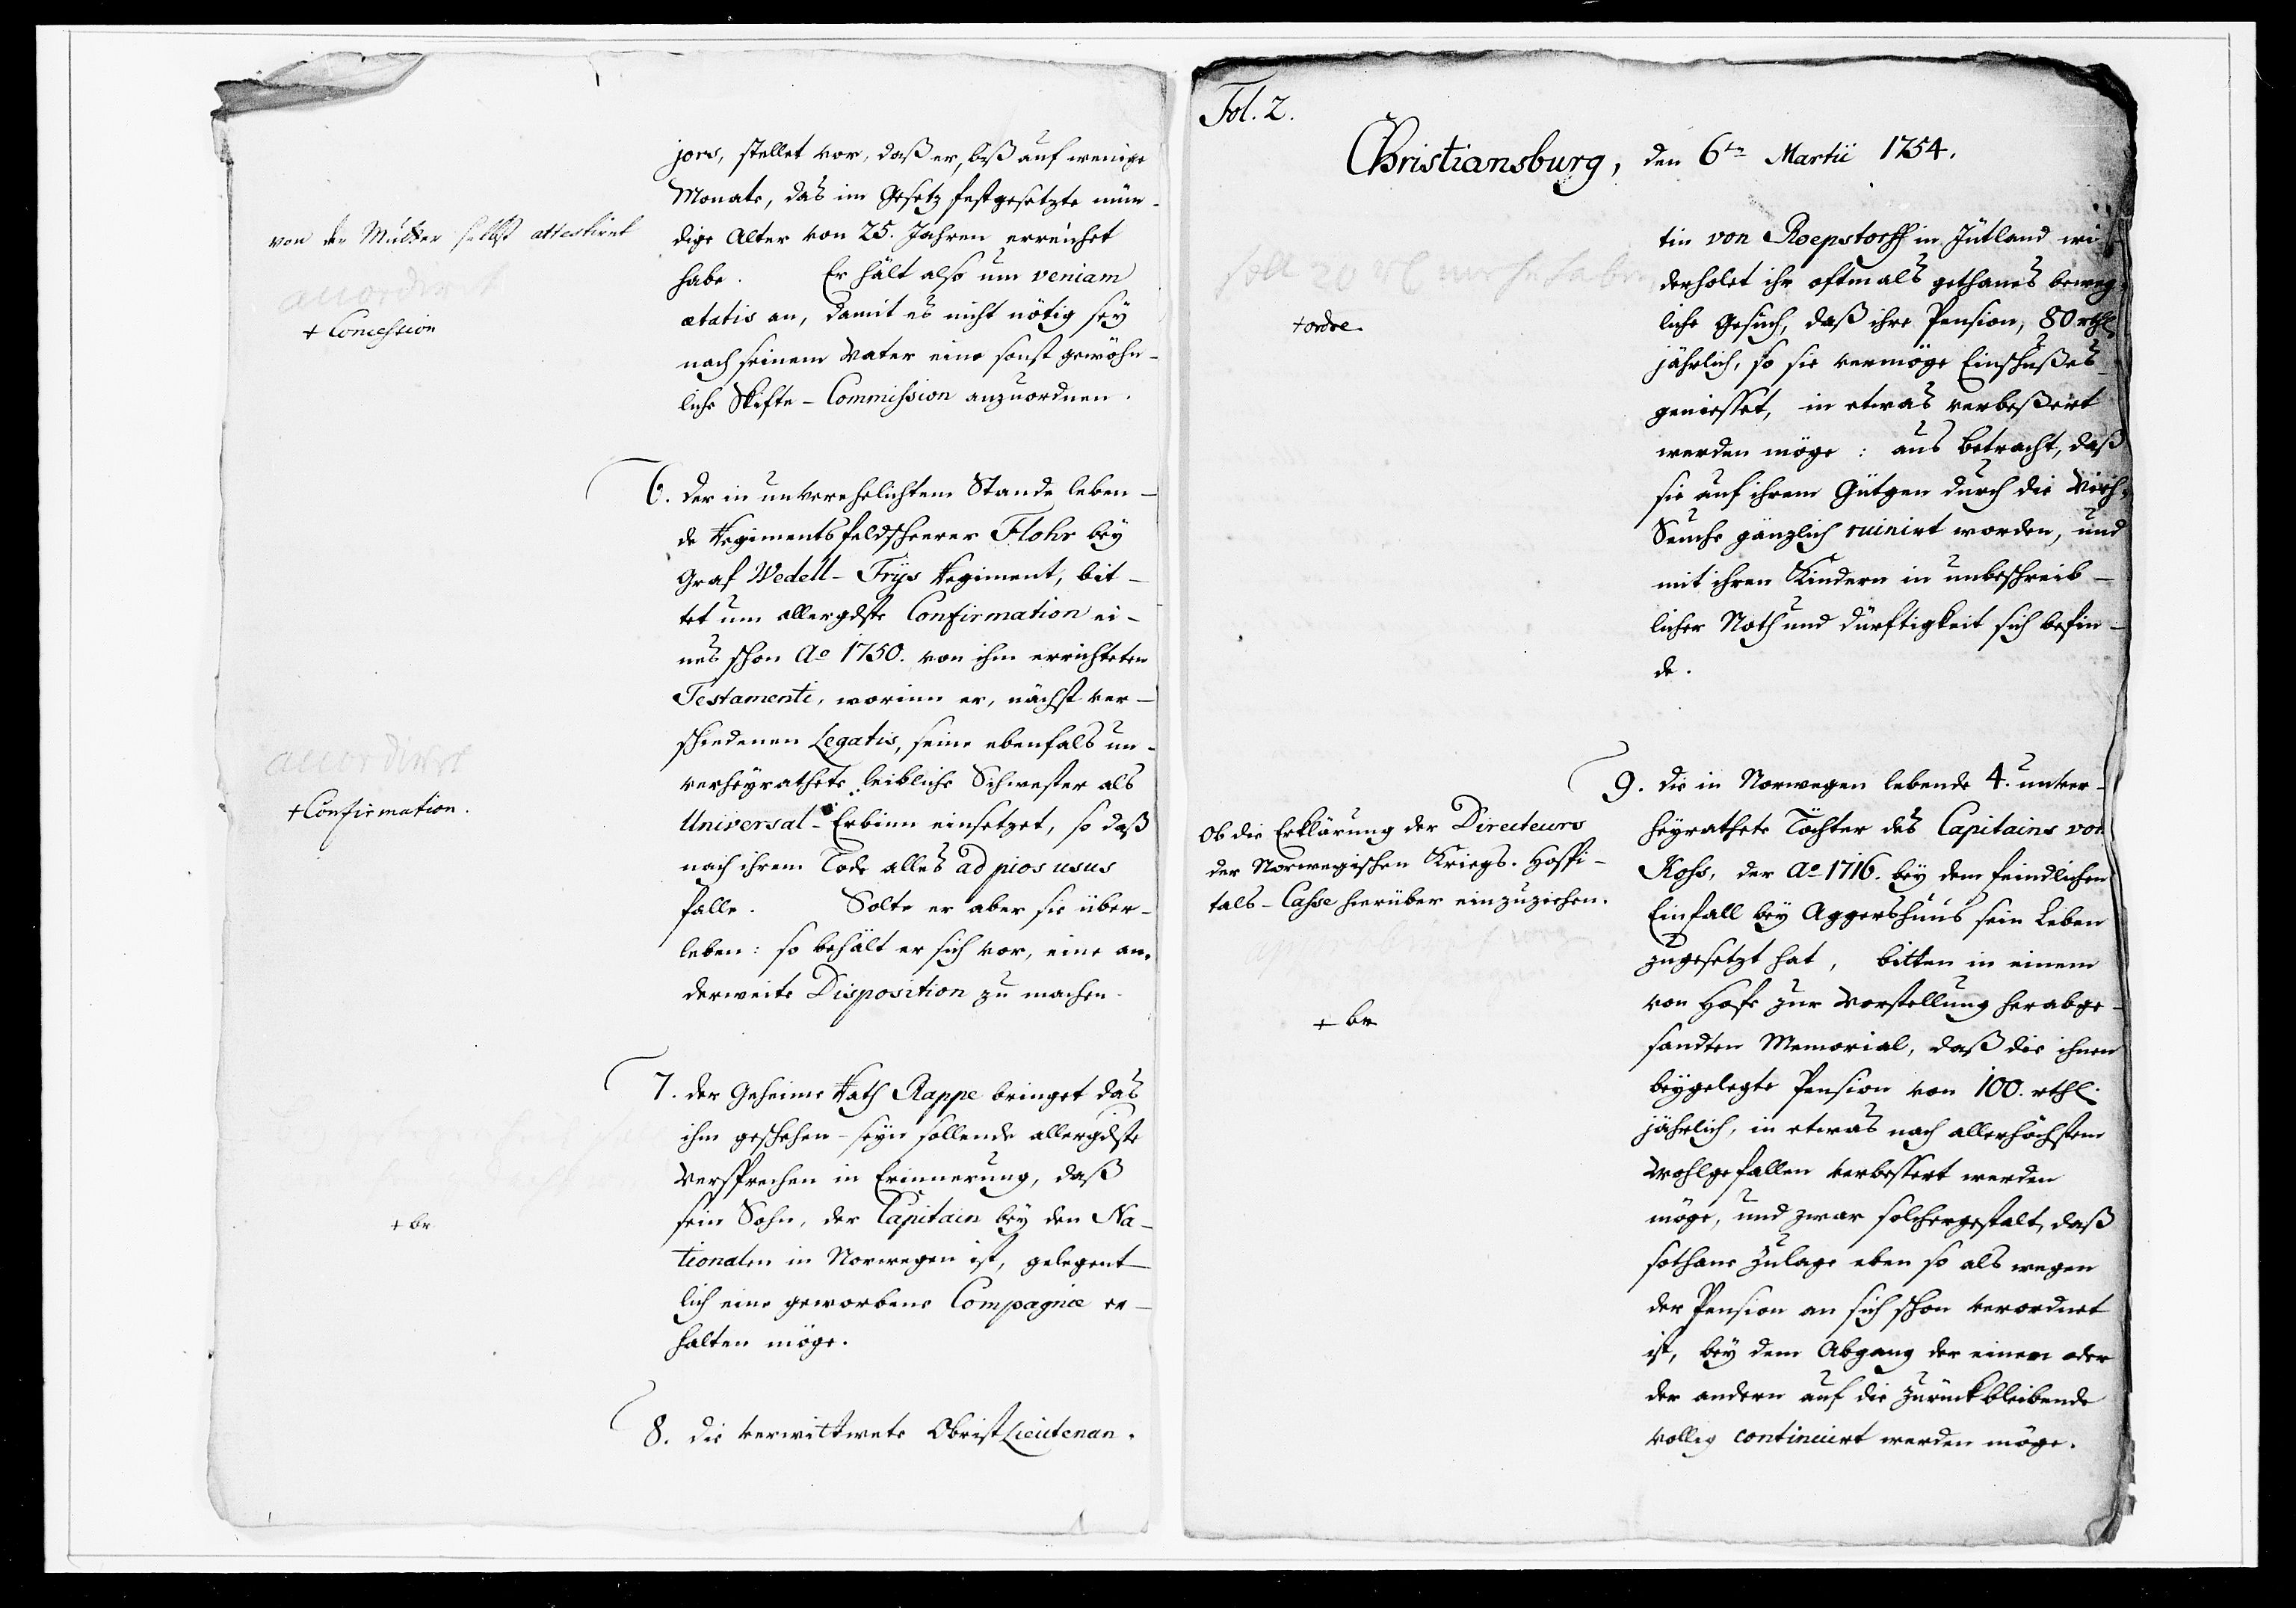 jors, stellet vor, daß er, biß auf wenige
Monate, das im Gesetz festgesetzte mün-
dige Alter von 25. Jahren erreichet
habe. Er hält also um veniam
ætatis an, damit es nicht nötig sey
nach seinem Vater eine sonst gewöhn-
liche Skifte-Commission anzuordnen.
von der Mutter selbst attestiret
accordirt
+ Concession
6. Der in unverehelichtem Stande leben-
de Regimentsfeldscheerer Flohr bey
Graf Wedell-Frijs Regiment, bit-
tet um allergdste Confirmation ei-
nes schon Ao 1750. von ihm errichteten
Testamenti, worinn er, nächst ver-
schiedenen Legatis, seine ebenfals un-
verheyrathete leibliche Schwester als
Universal-Erbinn einsetzet, so daß
nach ihrem Tode alles ad pios usus
falle. Solte er aber sie über-
leben: so behält er sich vor, eine an-
derweite Disposition zu machen.
accordirt
+ Confirmation.
7. Der Geheime Rath Rappe bringet das
ihm geschehen-seyn sollende allergdste
Versprechen in Erinnerung, daß
sein Sohn, der Capitain bey den Na-
tionalen in Norwegen ist, gelegent-
lich eine geworbene Compagnie er-
halten möge.
+ br
8. Die verwittwete ObristLieutenan-
Fol. 2.
Christiansburg, den 6tn Martii 1754.
tin von Roepstorff in Jütland wie-
derholet ihr oftmals gethanes beweg-
liche Gesuch, daß ihre Pension, 80 rthl
jährlich, so sie vermöge Einschußes
geniesset, in etwas verbeßert
werden möge: aus Betracht, daß
sie auf ihrem Gütgen durch die Vieh-
Seuche gänzlich ruinirt worden, und
mit ihren Kindern in unbeschreib-
licher Noth und Dürftigkeit sich befin-
de.
soll 20 mehr haben
+ ordre.
9. Die in Norwegen lebende 4. unver-
heyrathete Töchter des Capitains von
Koss, der Ao 1716. bey dem feindlichen
Einfall bey Aggershuus sein Leben
zugesetzt hat, bitten in einem
von Hofe zur Vorstellung herabge-
sandten Memorial, daß die ihnen
beygelegte Pension von 100. rthl.
jährlich, in etwas nach allerhöchstem
Wohlgefallen verbessert werden
möge, und zwar solchergestalt, daß
sothane Zulage eben so als wegen
der Pension an sich schon verordnet
ist, bey dem Abgang der einen oder
der andern auf die Zurückbleibende
vollig continuirt werden möge.
Ob die Erklärung der Directeurs
der Norwegischen Kriegs-Hospi-
tals-Casse hierüber einzuziehen.
+ br